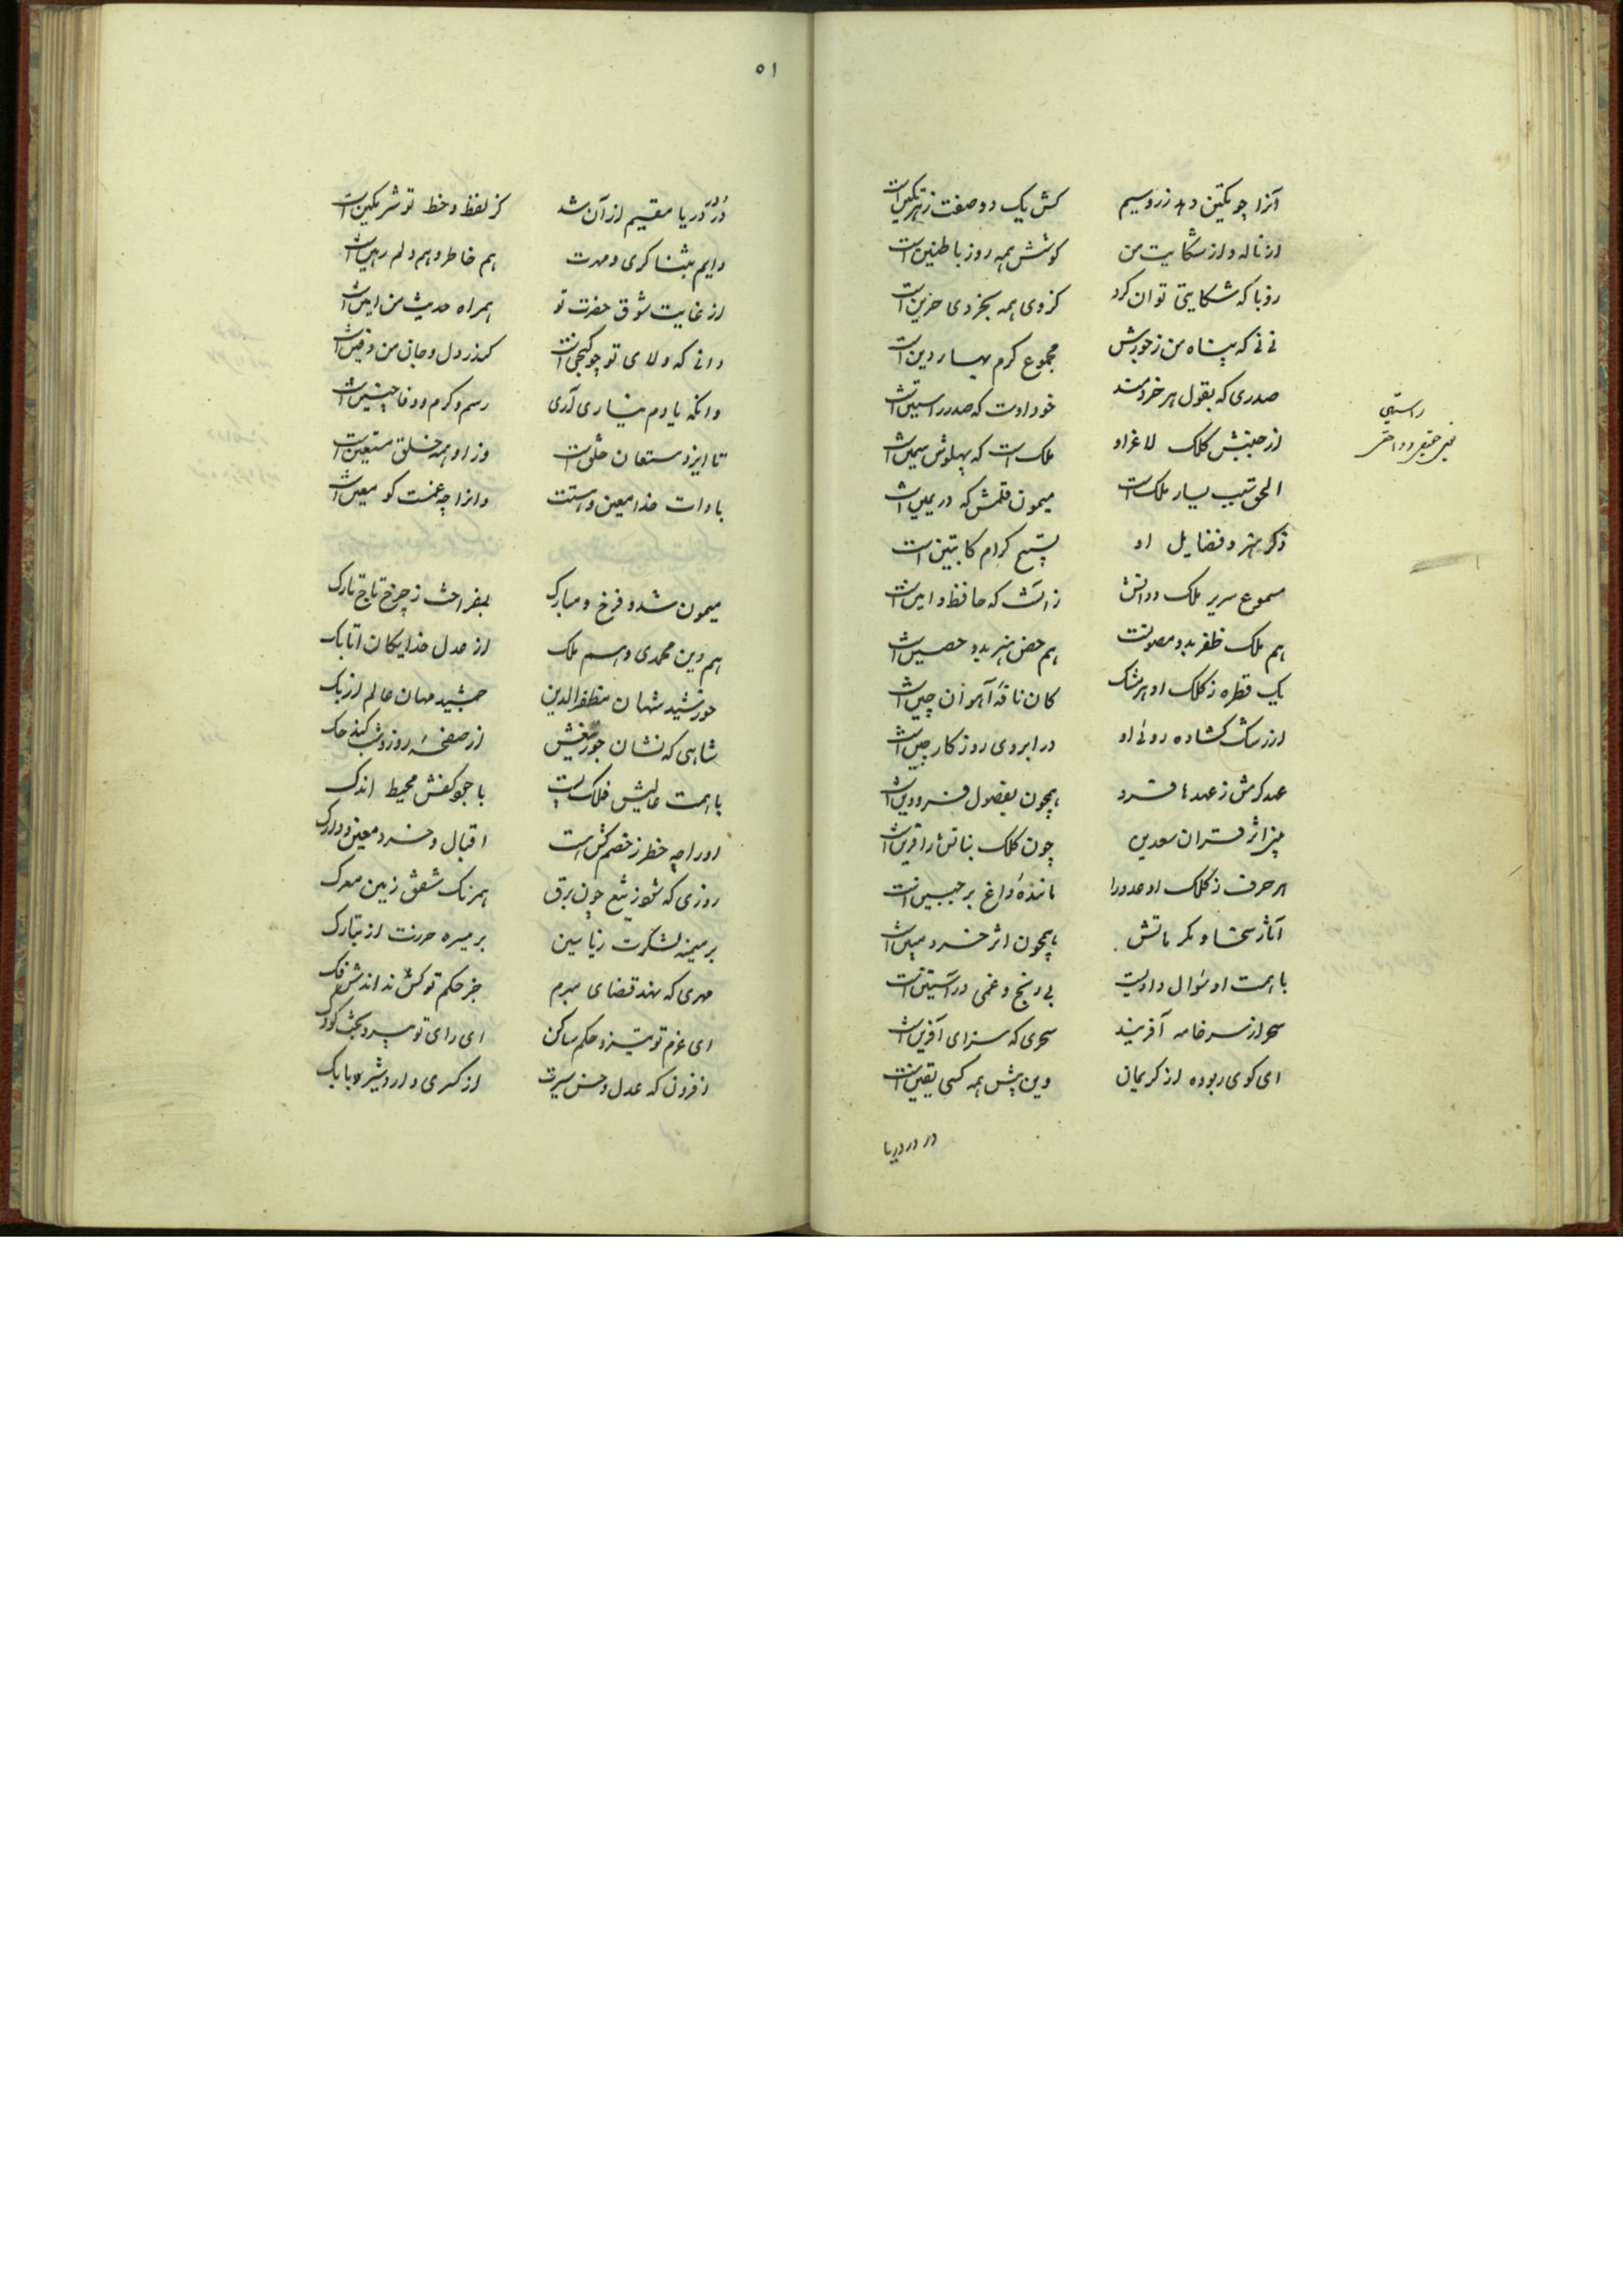 آنرا چو نکین دهد زر و سیم کش یک دو صفت زهر نکین است
از ناله و از شکایت من گوشش همه روز با طنین است
رو با که شکایتی توان کرد کز وی همه بخردی حزین است
نی نی که پناه من ز جورش مجموع کرم بهار دین است
صدری که بقول هر خردمند خود اوست که صدر راستین است
راستین
از جنبش کلک لاغر او ملک است که پهلوش سمین است
الحق سبب یسار ملک است میمون قلمش که در یمین است
ذکر هنر و فضایل او تسبیح کرام کاتبین است
مسموع سریر ملک و دانش زانست که حافظ و امین است
هم ملک ظفر بدو مصونست هم حصن هنر بدو حصین است
یک قطره ز کلک او هر مشک کان نافهٔ آهوان چین است
از رشک گشاده روئی او در ابروی روزگار چین است
عهد کرمش ز عهدها فرد همچون بفصول فرودین است
اثر قران سعدین چون کلک بنانش را قرین است
هر حرف ز کلک او عدو را مانندهٔ داغ بر جبین است
آثار سخا و مکرماتش همچون اثر خرد مبین است
با همت او سؤال دادیست بی رنج و غمی در آستین است
سحر از سر خامه آفریند سحری که سزای آفرین است
ای گوی ربوده از کریمان وین پیش همه کسی یقین است
در در دریا
۵۱
در در دریا مقیم از آن شد کز لفظ و خط تو شرمگین است
دایم بثنا گری و مدحت هم خاطر و هم دلم رهین است
از غایت شوق حضرت تو همراه حدیث من انین است
دانی که ولای تو چو گنجی است کاندر دل و جان من دفین است
وانگه یادم نیاری آری رسم کرم و وفا چنین است
تا ایزد مستعان خلق است وز او همه خلق مستعین است
بادات خدا معین و استت وانرا چه غمست کو معین است
میمون شد و فرخ و مبارک بفراخت ز چرخ تاج تارک
هم دین محمدی و هم ملک از عدل خدایگان اتابک
خورشید شهان مظفرالدین جمشید مهان عالم ازبک
شاهی که نشان جور تیغش از صفحهٔ روز و شب کند حک
با همت عالیش فلک پست با جود کفش محیط اندک
او را چه خطر ز خصم کش است اقبال و خرد معین و دارک
روزی که شود ز تیغ چون برق همرنگ شفق زمین معرک
بر میمنه لشکرت ز یاسین بر میسره حرزت از تبارک
مهری که نهد قضای مبرم جز حکم تو کس نداندش فک
ای عزم تو تیز و حکم ساکن ای رای تو پیر و بخت کودک
افزون که عدل و حسن سیرت از کسری و اردشیر و بابک